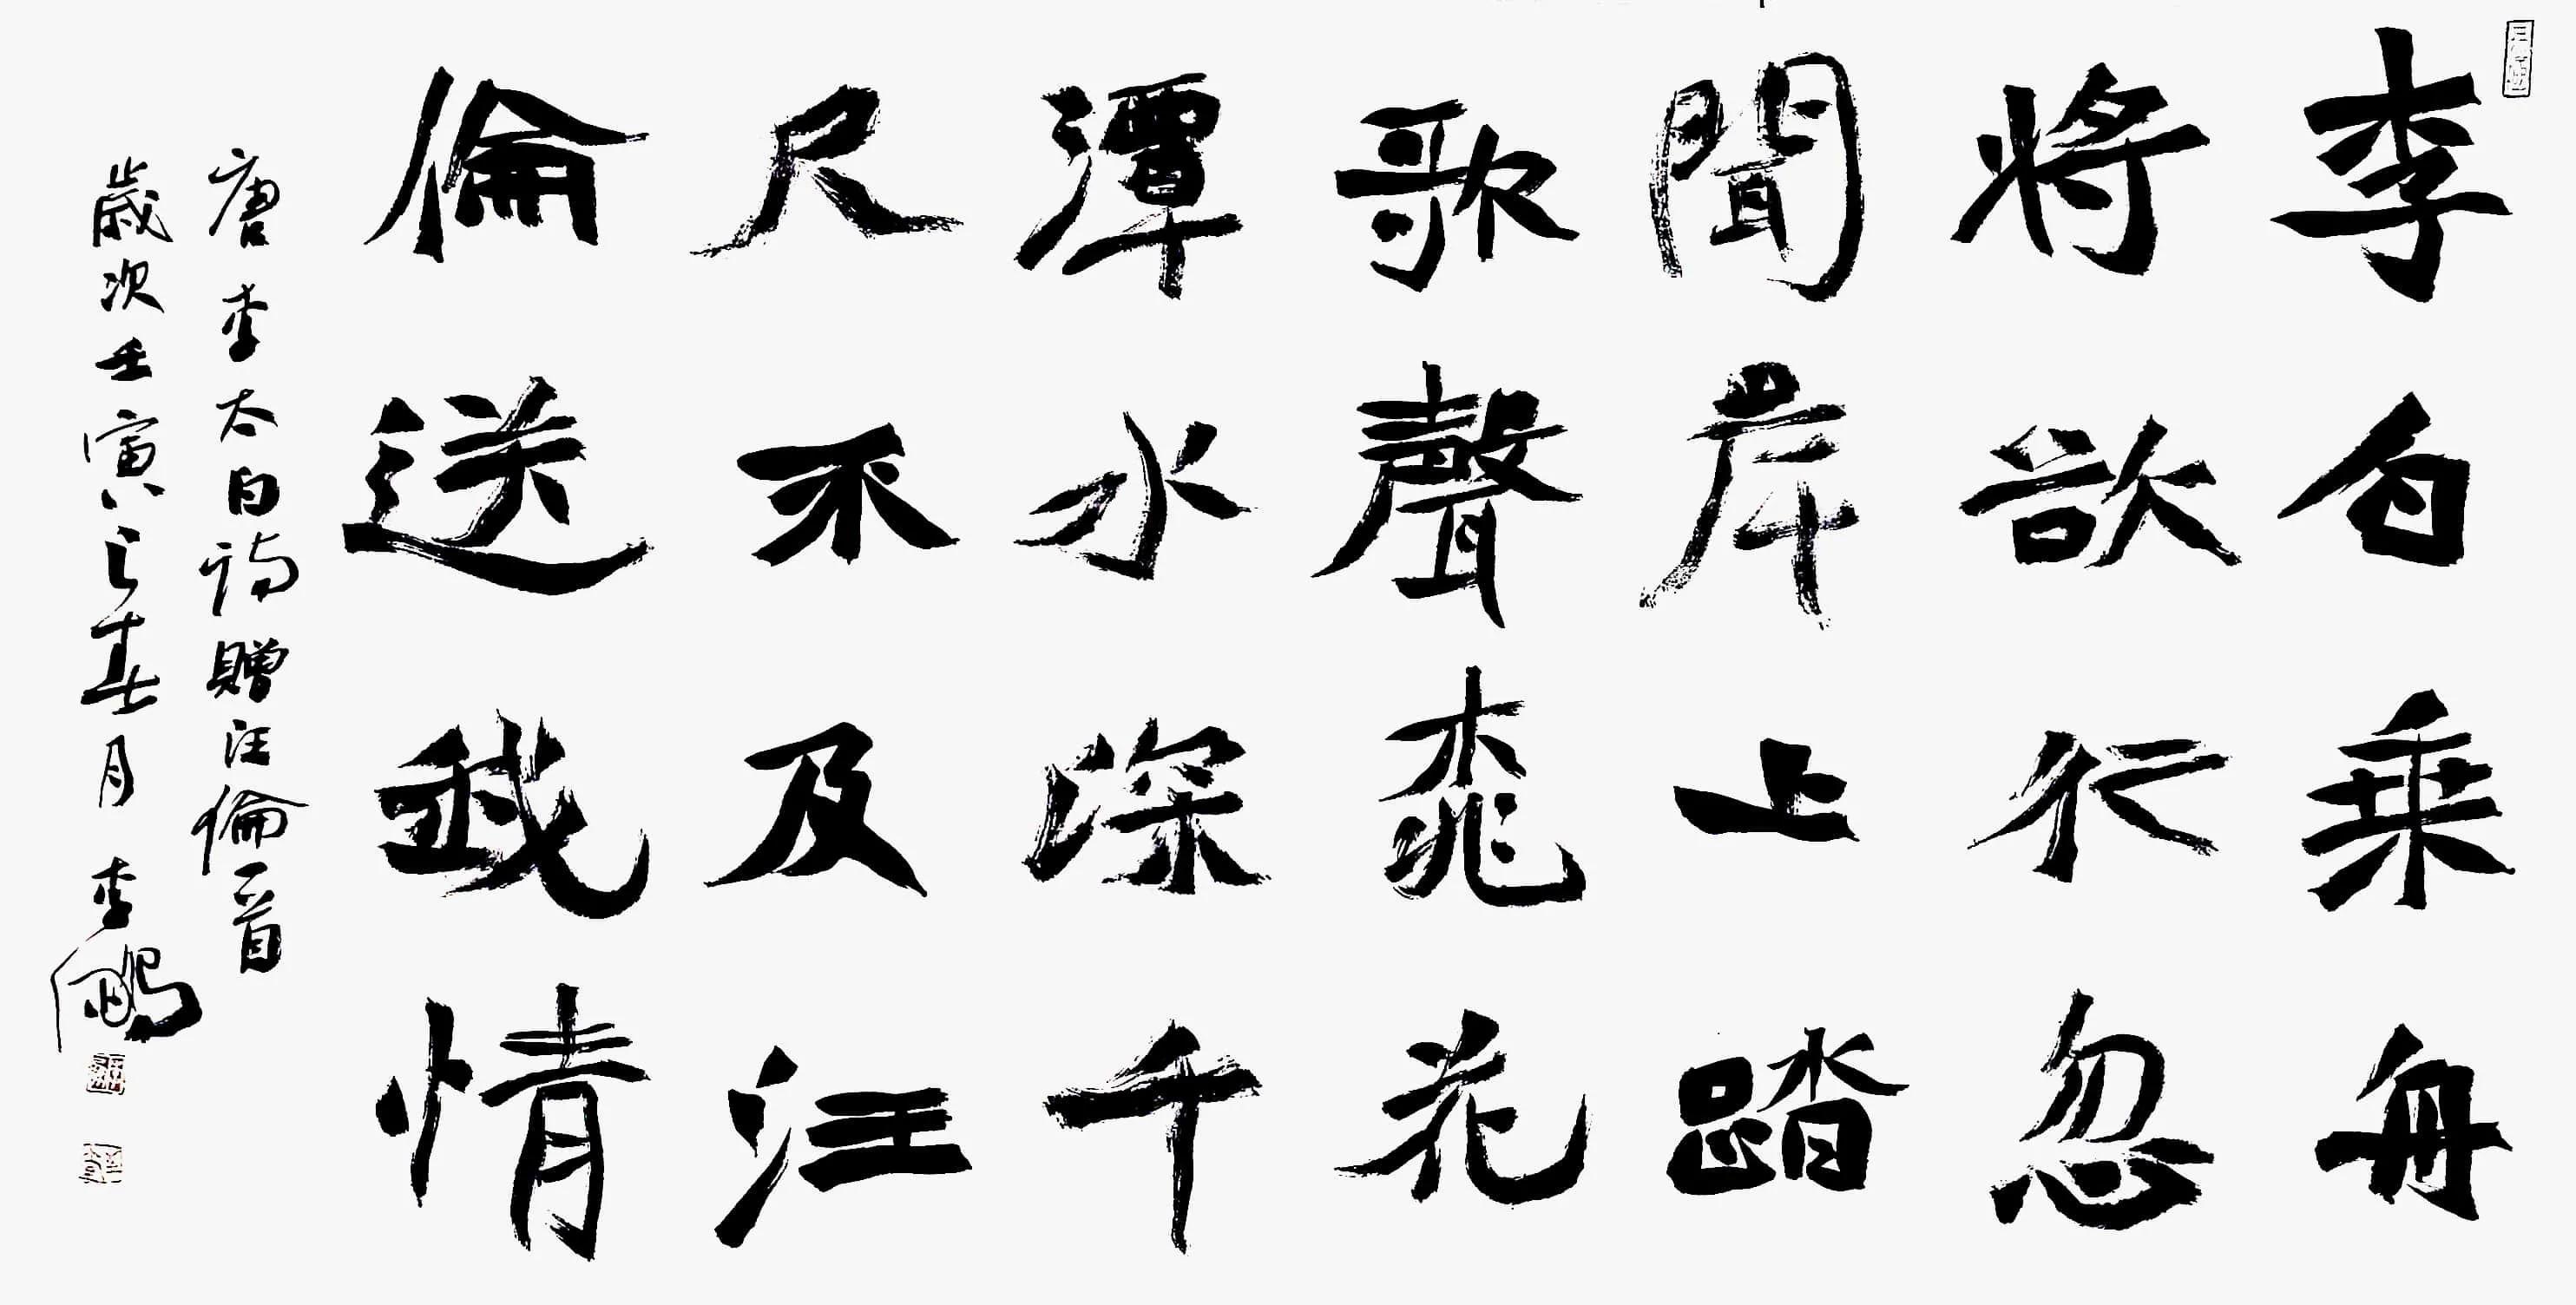 李白乘舟
將欲行忽
聞岸上踏
歌聲桃花
潭水深千
尺不及汪
倫送我情
唐李太白詩贈汪倫一首
歲次壬寅之春月 李鵬